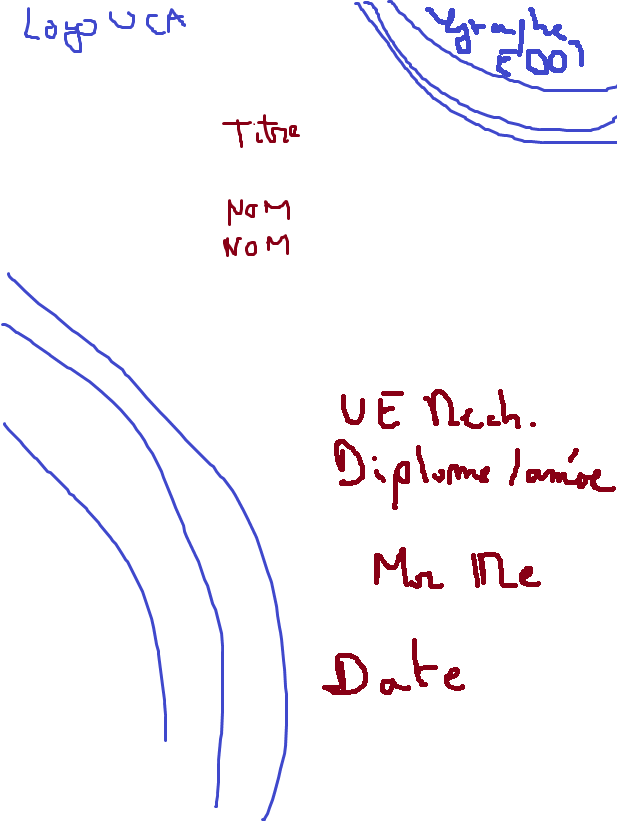 Logo UCA
EDO
Titre
NOM
NOM
UE Mech.
Diplome / année
Mr Me
Date